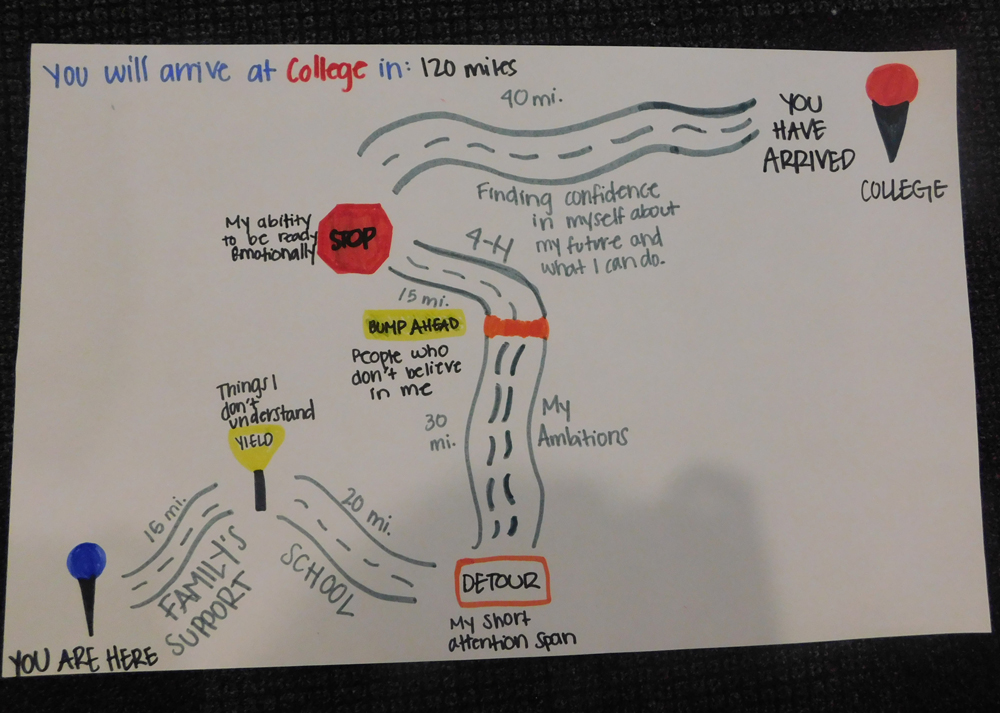 You will arrive at College in: 120 miles
40 mi.
YOU
HAVE
ARRIVED
COLLEGE
Finding confidence
in myself about
my future and
what I can do.
My ability
to be ready
Emotionally
STOP
4-H
15 mi.
BUMP AHEAD
People who
don't believe
in me
30
mi.
My
Ambitions
Things I
don't
understand
YIELD
15 mi.
20 mi.
FAMILY'S
SUPPORT
SCHOOL
DETOUR
My short
attention span
YOU ARE HERE